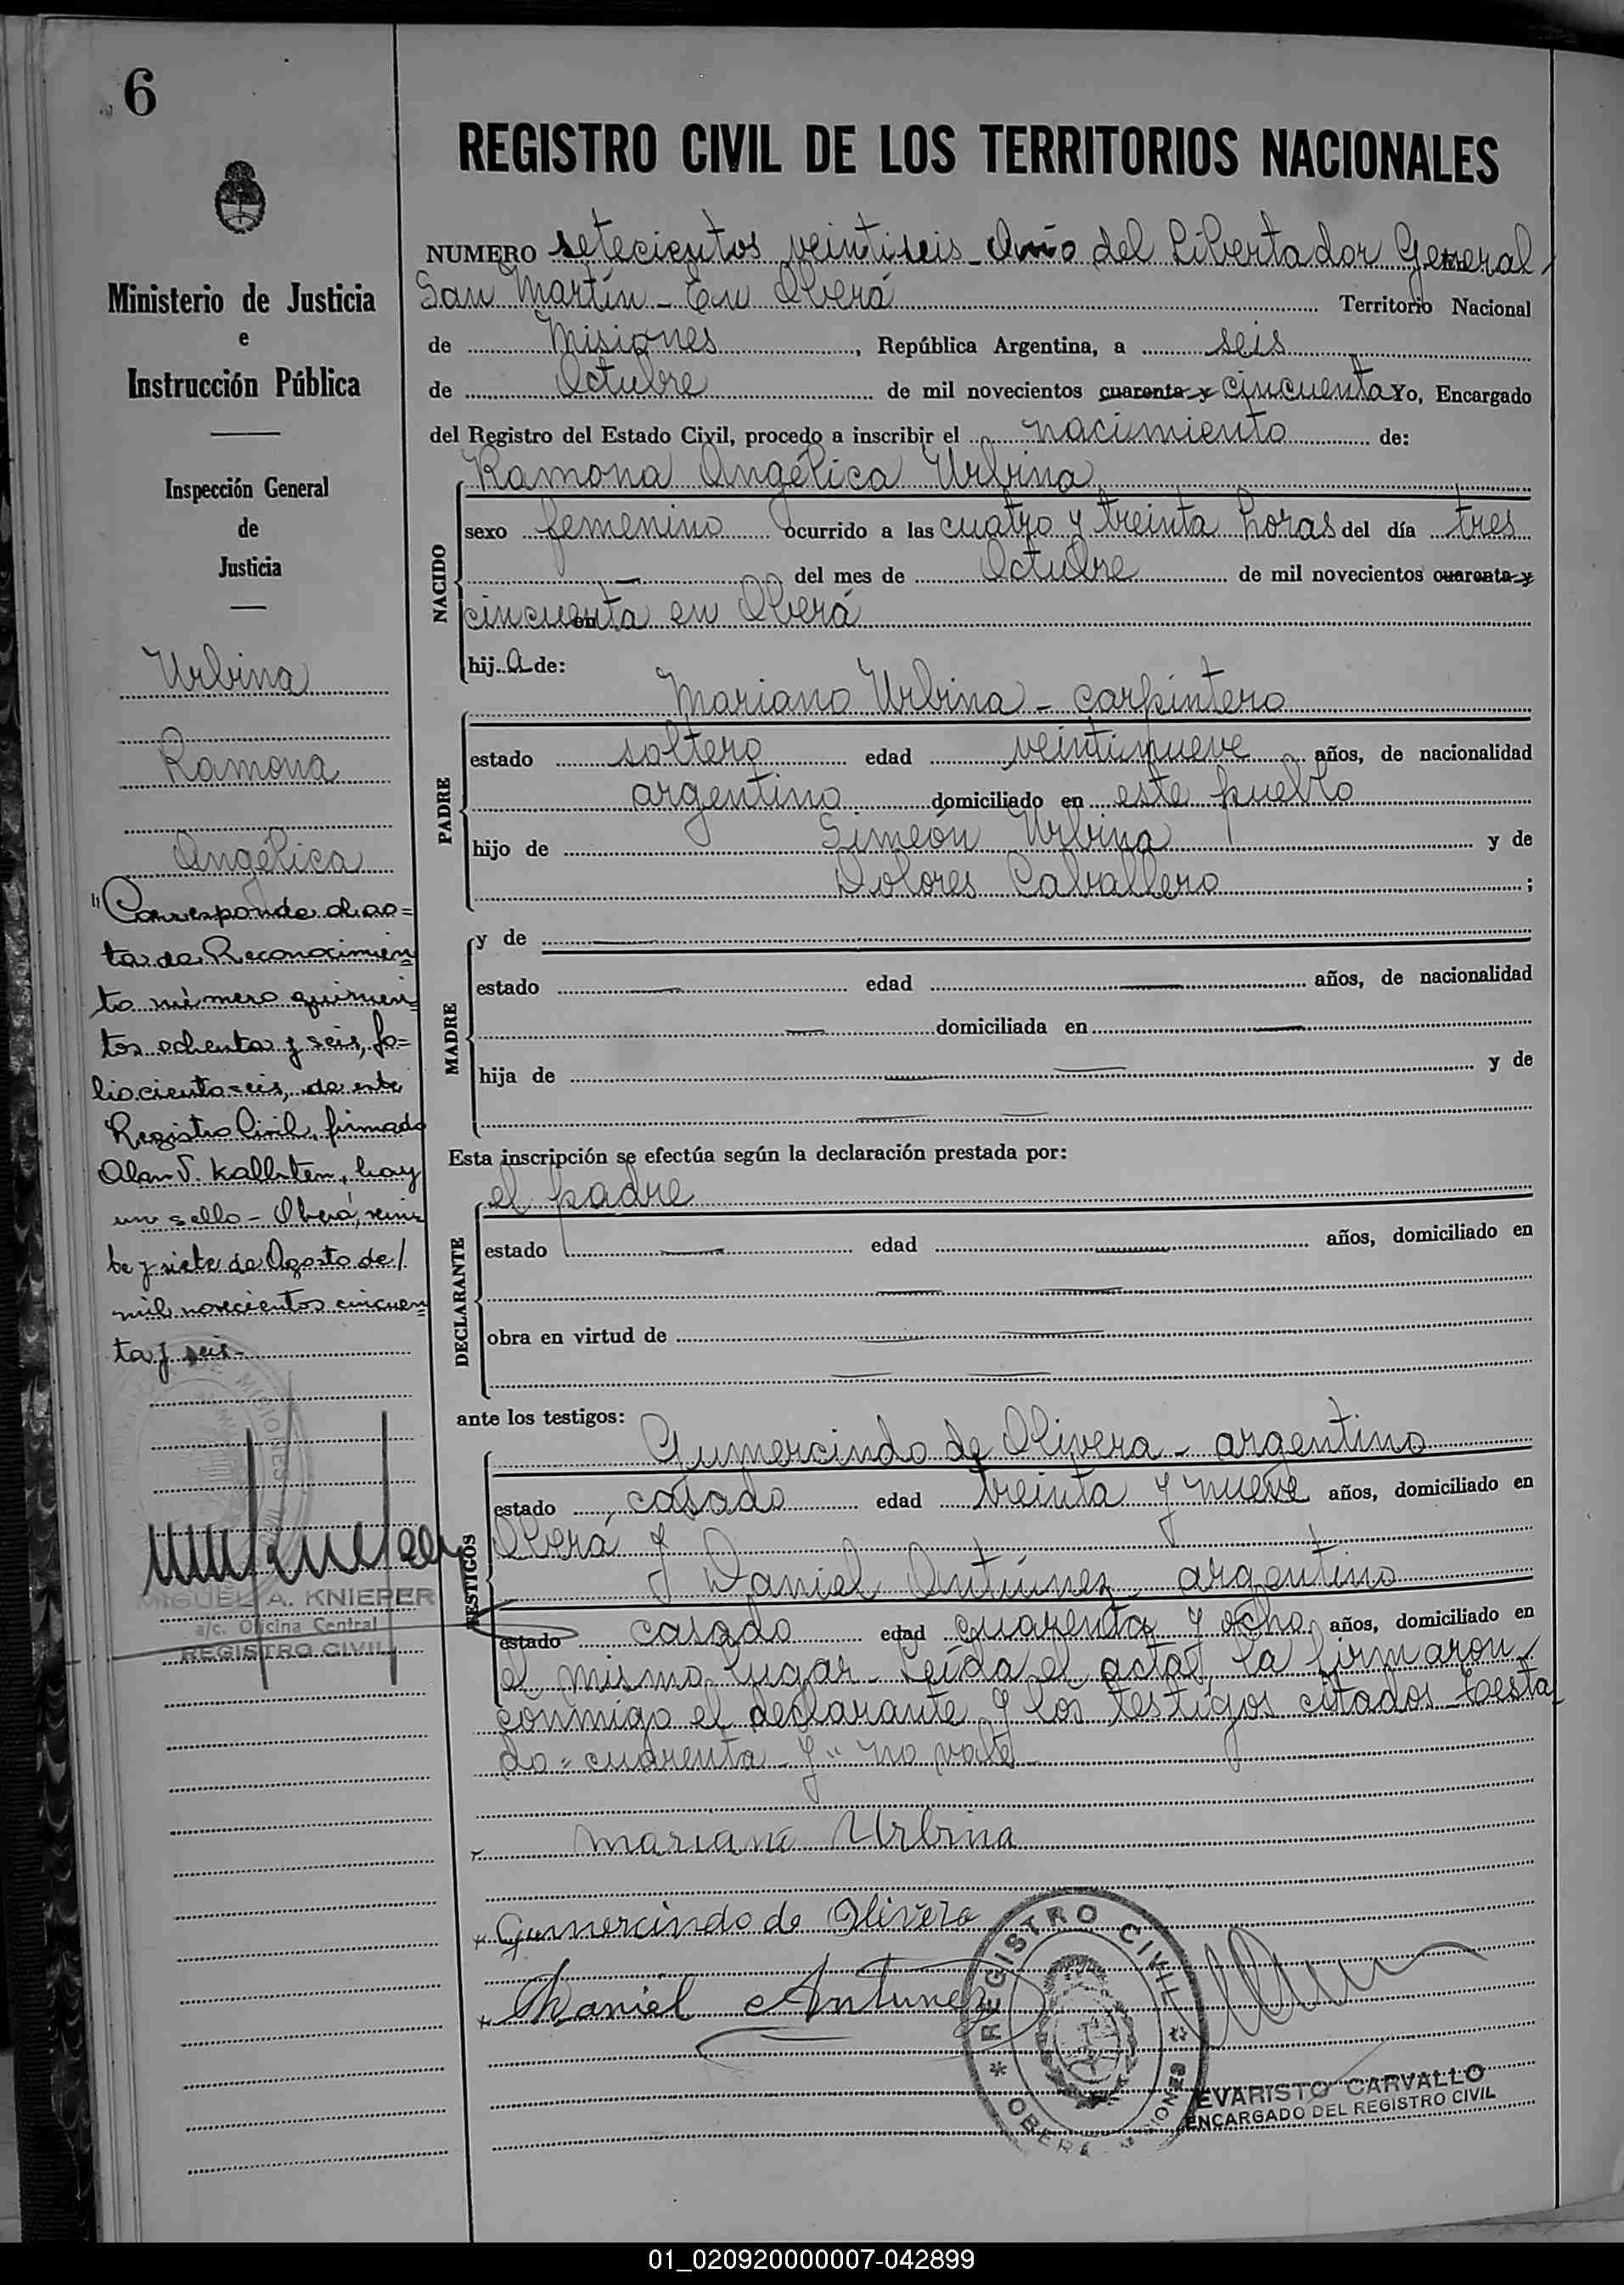 6
REGISTRO CIVIL DE LOS TERRITORIOS NACIONALES
Ministerio de Justicia
e
Instrucción Pública
Inspección General
de
Justicia
Urbina
Ramona
Angélica
"Corresponde al ac=
ta de Reconocimien
to número quinien
tos ochenta y seis, fo=
lio ciento seis, de este
Registro Civil, firmado
Alan S. Kallsten, hay
un sello - Oberá, vein
te y siete de Agosto de /
mil novecientos cincuen
ta y seis -
MIGUEL A. KNIEPER
a/c. Oficina Central
REGISTRO CIVIL
NUMERO setecientos veintiseis - Año del Libertador General
San Martín - En Oberá Territorio Nacional
de Misiones, República Argentina, a seis
de Octubre de mil novecientos cuarenta y cincuenta Yo, Encargado
del Registro del Estado Civil, procedo a inscribir el nacimiento de:
Ramona Angélica Urbina
NACIDO
sexo femenino ocurrido a las cuatro y treinta horas del día tres
del mes de Octubre de mil novecientos cuarenta y
cincuenta en Oberá
hij a de:
Mariano Urbina - carpintero
PADRE
estado soltero edad veintinueve años, de nacionalidad
argentino domiciliado en este pueblo
hijo de Simeón Urbina y de
Dolores Caballero ;
MADRE
y de
estado edad años, de nacionalidad
domiciliada en
hija de y de
Esta inscripción se efectúa según la declaración prestada por:
el padre
DECLARANTE
estado edad años, domiciliado en
obra en virtud de
ante los testigos:
Gumercindo de Olivera - argentino
TESTIGOS
estado casado edad treinta y nueve años, domiciliado en
Oberá y
Daniel Antúnez argentino
estado casado edad cuarenta y ocho años, domiciliado en
el mismo lugar - Leída el acta, la firmaron
conmigo el declarante y los testigos citados - testa
do = cuarenta - y " no vale
Mariano Urbina
Gumercindo de Olivera
Daniel Antunez
REGISTRO CIVIL
OBERÁ MISIONES
EVARISTO CARVALLO
ENCARGADO DEL REGISTRO CIVIL
01_020920000007-042899